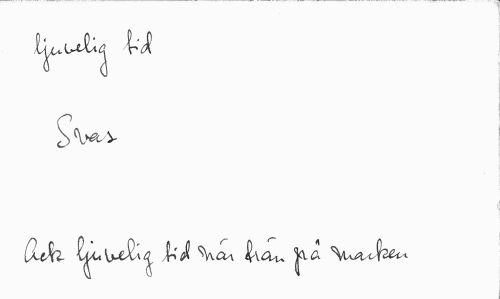 ljuvelig tid
Svas
Ack ljuvelig tid när trän på marken